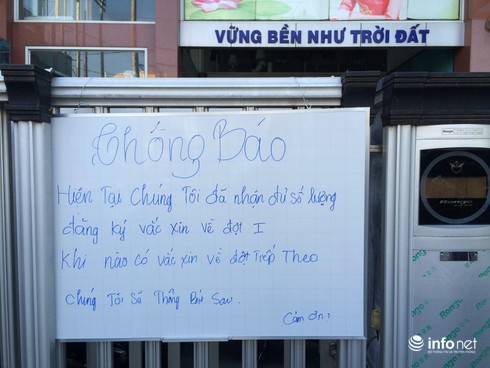 VỮNG BỀN NHƯ TRỜI ĐẤT
Thông Báo
Hiện Tại Chúng Tôi đã nhận đủ số lượng
đăng ký vắc xin về đợt I
Khi nào có vắc xin về đợt Tiếp Theo
Chúng Tôi Sẽ Thông Báo Sau.
Cảm ơn!
infonet